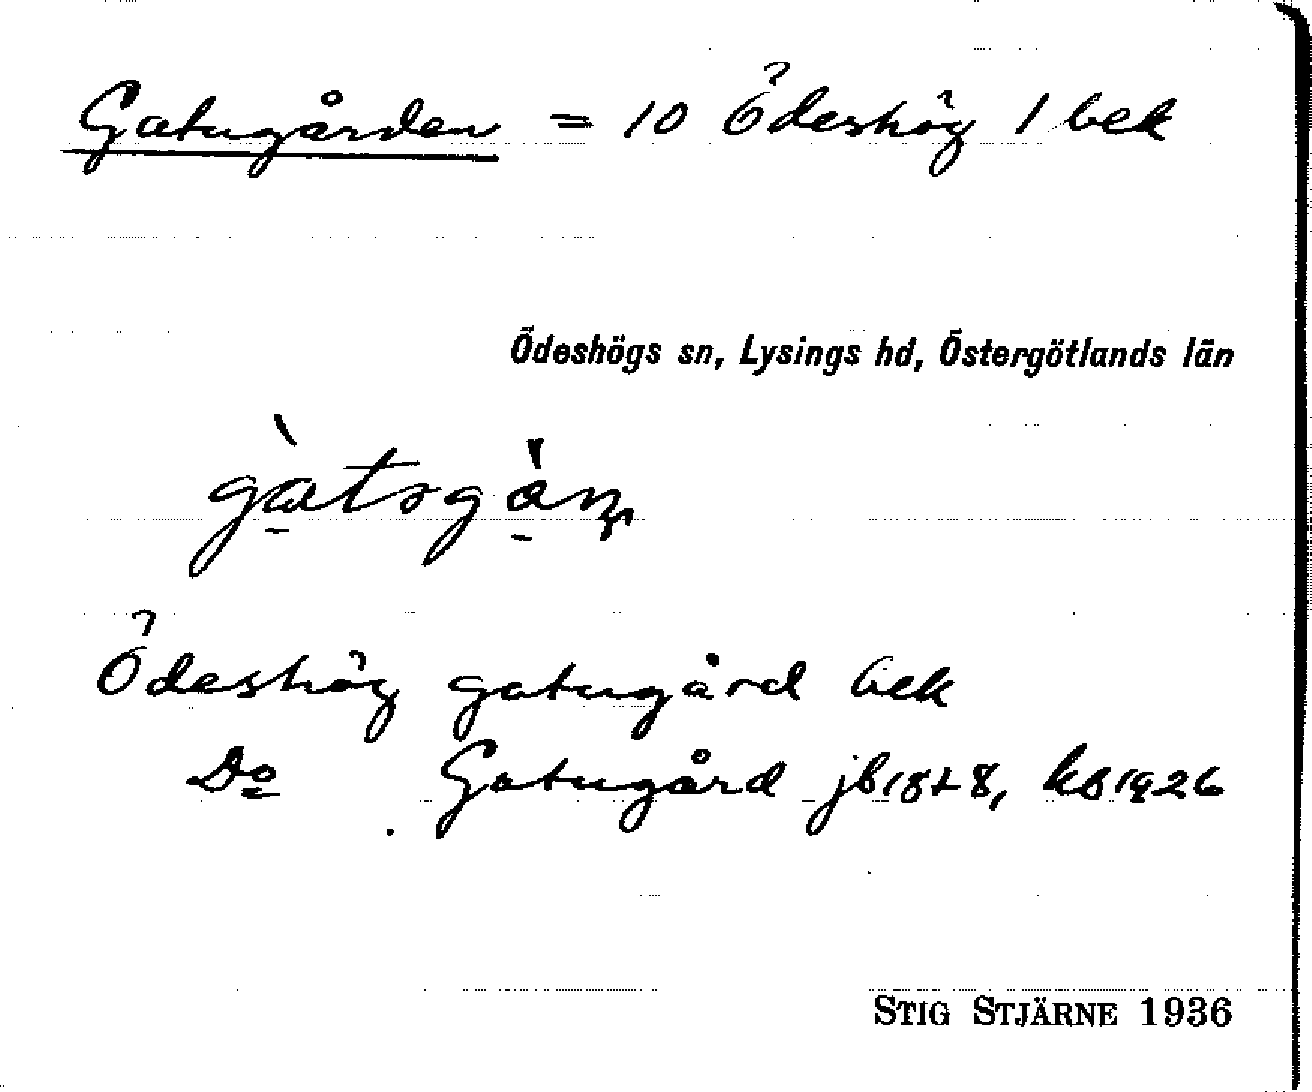 Gatugården = 10 Ödeshög 1 bek
Ödeshögs sn, Lysings hd, Östergötlands län
Ödeshög gatugård bek
Do Gatugård jb1878, kb1926
STIG STJÄRNE 1936